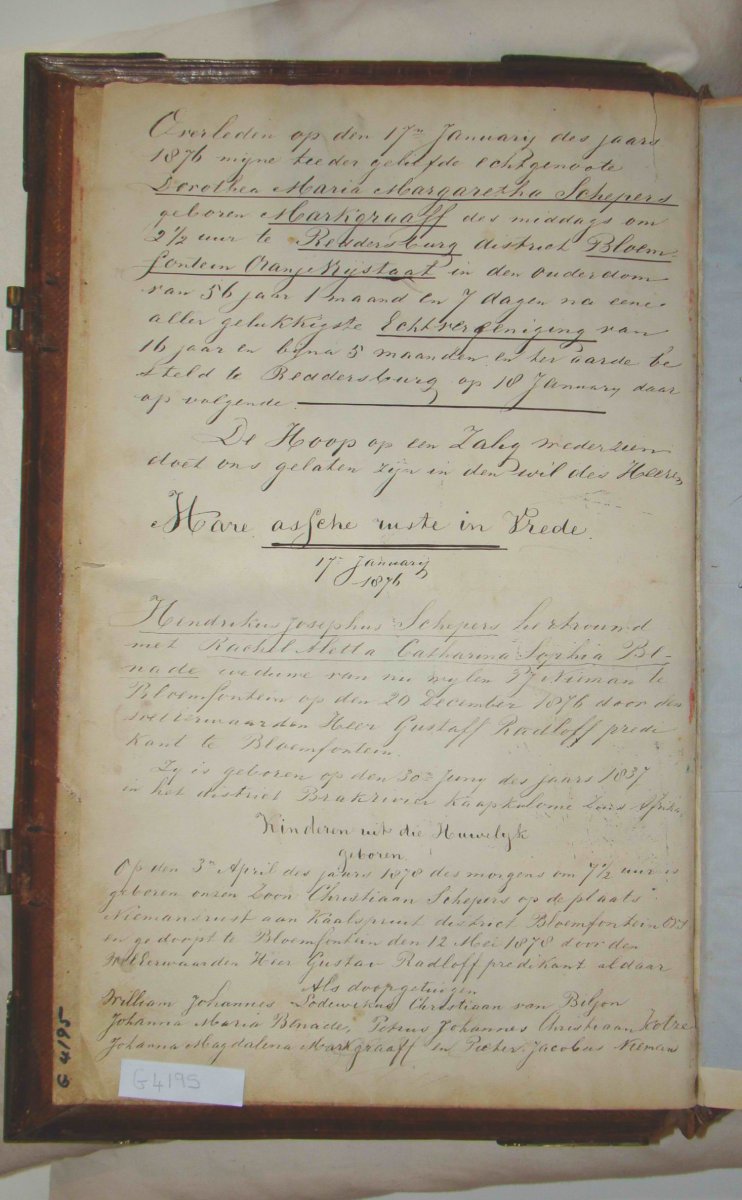 Overleden op den 17n January des jaars
1876 myne teeder geliefde echtgenoote
Dorothea Maria Margaretha Schepers
geboren Markgraaff des middags om
2 1/2 uur te Reddersburg district Bloem-
fontein Oranje Vrijstaat in den ouderdom
van 56 jaar 1 maand en 7 dagen na eene
aller gelukkigste Echtvereeniging van
16 jaar en byna 5 maanden en ter aarde be
steld te Reddersburg op 18 January daar
op volgende
De Hoop op een Zalig wederzien
doet ons gelaten zijn in den wil des Heeren
Hare assche ruste in Vrede.
17n January
1876
Hendrikus Josephus Schepers hertrouwd
met Rachel Aletta Catharina Sophia Be-
nade weduwe van nu wylen Nieman te
Bloemfontein op den 20 December 1876 door den
weleerwaarden Heer Gustaff Radloff predi
kant te Bloemfontein.
Zy is geboren op den 30n Juny des jaars 1837
in het district Brakrivier Kaapkolonie Zuid Afrika
Kinderen uit die Huwelyk
geboren
Op den 3n April des jaars 1878 des morgens om 7 1/2 uur is
geboren onzen Zoon Christiaan Schepers op de plaats
Niemansrust aan Kaalspruit district Bloemfontein OVS
en gedoopt te Bloemfontein den 12 Mei 1878 door den
WelEerwaarden Heer Gustav Radloff predikant aldaar
Als doopgetuigen
William Johannes Lodewikus Christiaan van Biljon
Johanna Maria Benade, Petrus Johannes Christiaan Kotze
Johanna Magdalena Markgraaff en Pieter Jacobus Nieman
G 4195
G4195